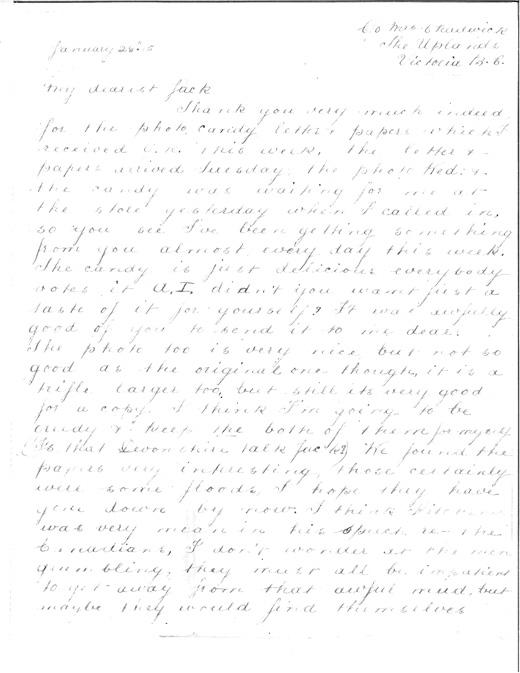 C/o Mrs Chadwick
The Uplands
Victoria B.C.
January 28th 5
My dearest Jack
Thank you very much indeed
for the photo, candy letter & papers which I
received O.K. this week, the letter &
papers arrived Tuesday, the photo Wed: &
the candy was waiting for me at
the store yesterday when I called in,
so you see I've been getting something
from you almost every day this week.
The candy is just delicious everybody
votes it A.I. didn't you want just a
taste of it for yourself? It was awfully
good of you to send it to me dear.
The photo too is very nice but not so
good as the original one though, it is a
trifle larger too, but still its very good
for a copy. I think I'm going to be
greedy & keep the both of them for myself
(Is that Devonshire talk Jack?) We found the
papers very interesting, those certainly
were some floods, I hope they have
gone down by now. I think Kitchener
was very mean in his speech re- the
Canadians, I don't wonder at the men
grumbling, they must all be impatient
to get away from that awful mud, but
maybe they would find themselves